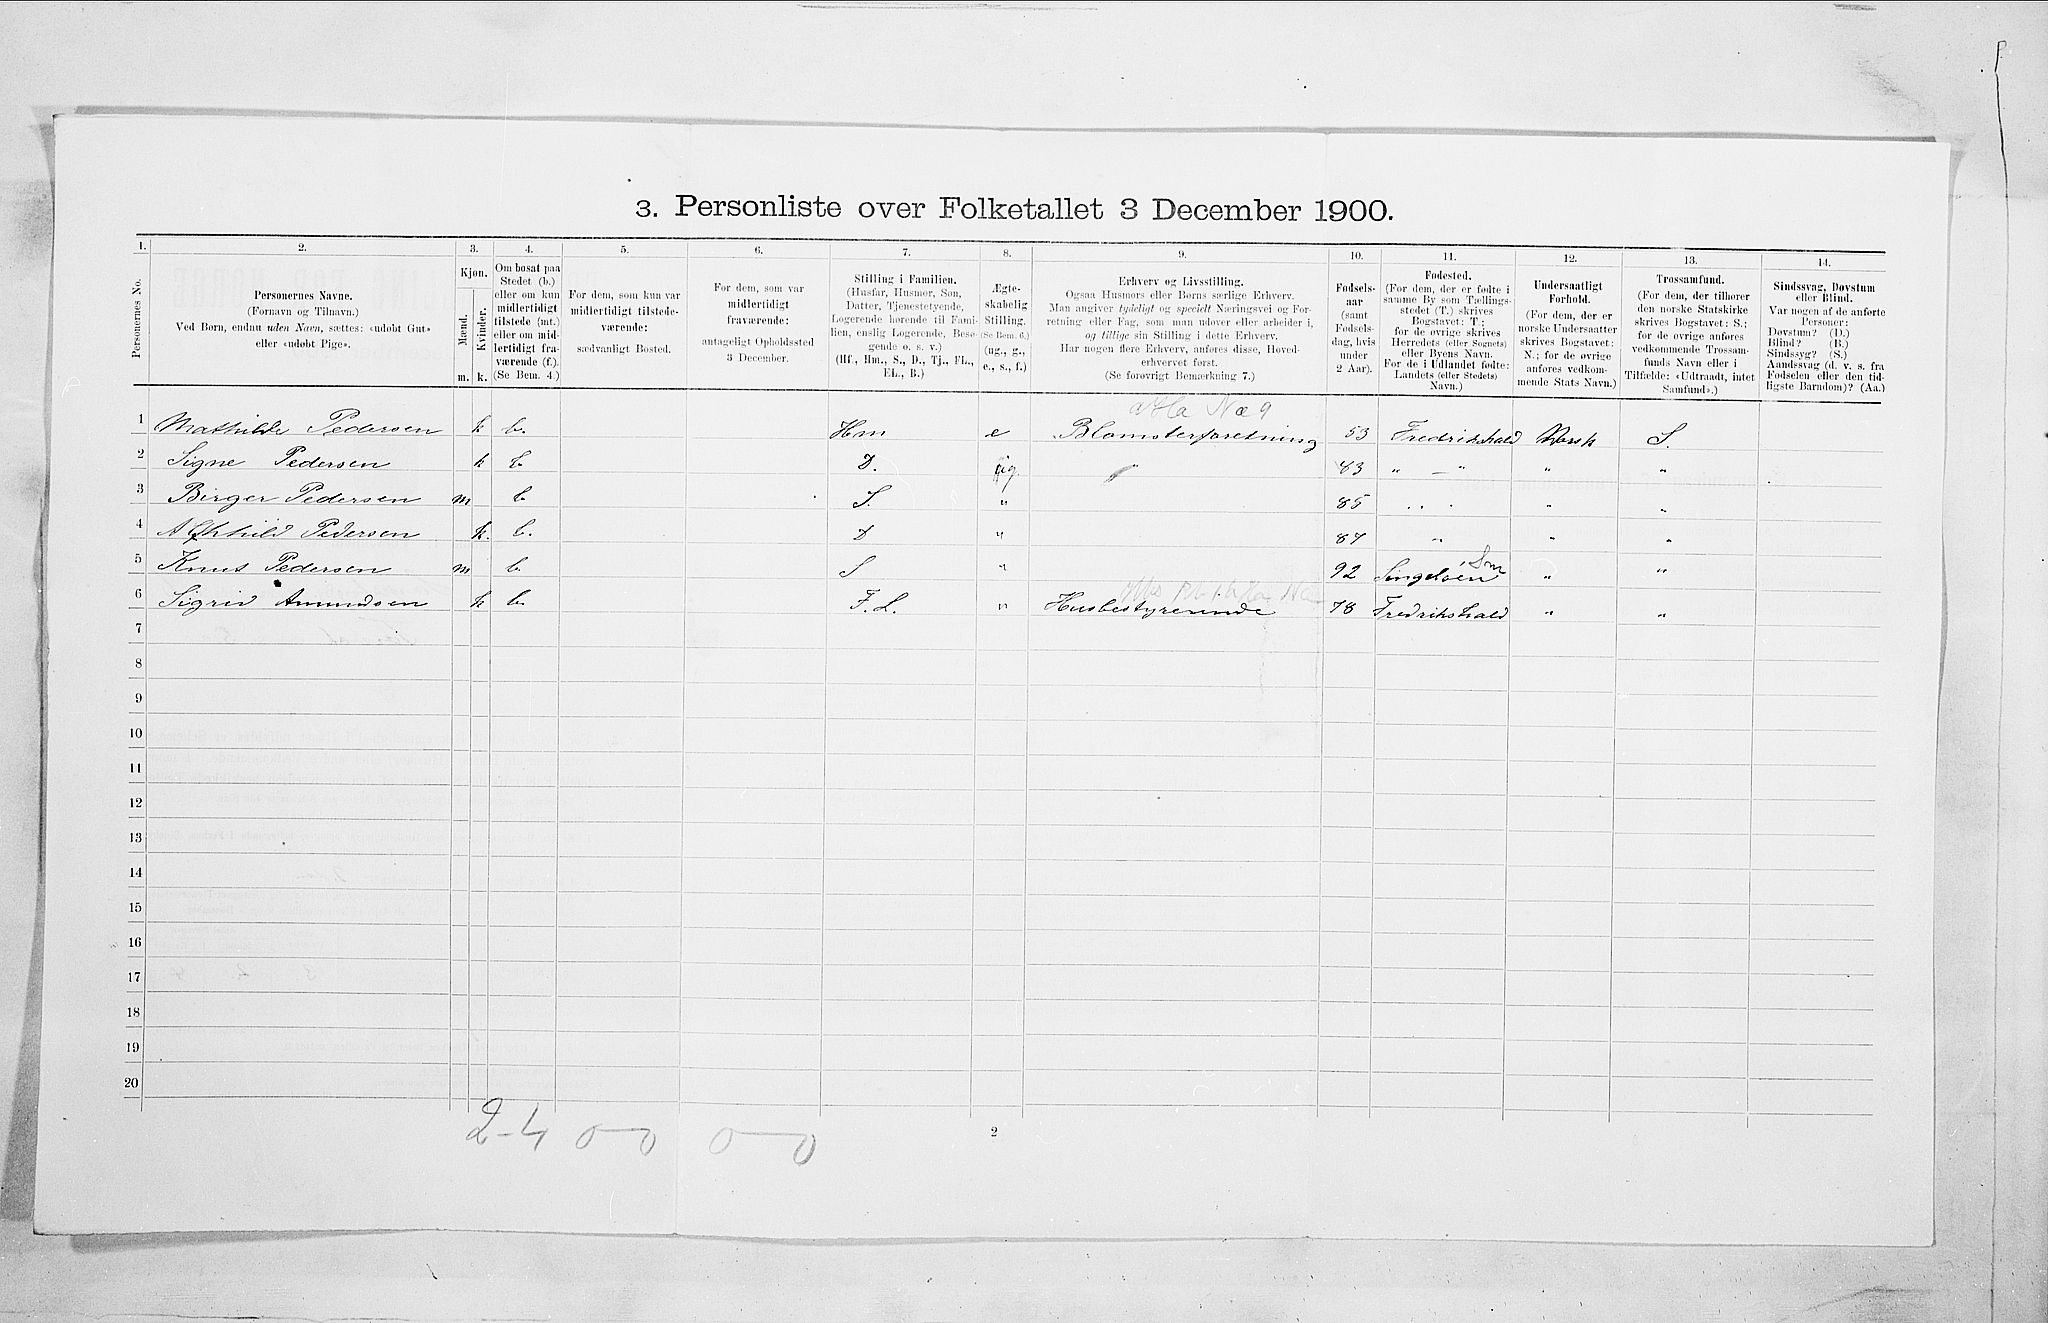 3. Personliste over Folketallet 3 December 1900.
1. 2. 3. 4. 5. 6. 7. 8. 9. 10. 11. 12. 13. 14.
Personernes No.
Personernes Navne.
(Fornavn og Tilnavn.)
Ved Børn, endnu uden Navn, sættes: «udøbt Gut»
eller «udøbt Pige».
Kjøn.
Mænd.
Kvinder.
m. k.
Om bosat paa
Stedet (b.)
eller om kun
midlertidigt
tilstede (mt.)
eller om mid-
lertidigt fra-
værende (f.).
(Se Bem. 4.)
For dem, som kun var
midlertidigt tilstede-
værende:
sædvanligt Bosted.
For dem, som var
midlertidigt
fraværende:
antageligt Opholdssted
3 December.
Stilling i Familien.
(Husfar, Husmor, Søn,
Datter, Tjenestetyende,
Logerende hørende til Fami-
lien, enslig Logerende, Besø-
gende o. s. v.)
(Hf., Hm., S., D., Tj., FL.,
EL., B.)
Ægte-
skabelig
Stilling.
(Se Bem. 6.)
(ug., g.,
e., s., f.)
Erhverv og Livsstilling.
Ogsaa Husmors eller Børns særlige Erhverv.
Man angiver tydeligt og specielt Næringsvei og For-
retning eller Fag, som man udøver eller arbeider i,
og tillige sin Stilling i dette Erhverv.
Har nogen flere Erhverv, anføres disse, Hoved-
erhvervet først.
(Se forøvrigt Bemærkning 7.)
Fødsels-
aar
(samt
Fødsels-
dag, hvis
under
2 Aar).
Fødested.
(For dem, der er fødte i
samme By som Tællings-
stedet (T.) skrives
Bogstavet: T.;
for de øvrige skrives
Herredets (eller Sognets)
eller Byens Navn.
For de i Udlandet fødte:
Landets (eller Stedets)
Navn.)
Undersaatligt
Forhold.
(For dem, der er
norske Undersaatter
skrives Bogstavet:
N.; for de øvrige
anføres vedkom-
mende Stats Navn.)
Trossamfund.
(For dem, der tilhører
den norske Statskirke
skrives Bogstavet: S.;
for de øvrige anføres
vedkommende Trossam-
funds Navn eller i
Tilfælde: «Udtraadt, intet
Samfund».)
Sindssvag, Døvstum
eller Blind.
Var nogen af de anførte
Personer:
Døvstum? (D.)
Blind? (B.)
Sindssyg? (S.)
Aandssvag (d. v. s. fra
Fødselen eller den tid-
ligste Barndom)? (Aa.)
1 Mathilde Pedersen k b. Hm e Blomsterforretning 53 Fredrikshald Norsk S.
2 Signe Pedersen k b. D. ug. " 83 " — " " "
3 Birger Pedersen m b. S. " 85 " " " "
4 Pedersen k. b. D " 87 " " "
5 Knut Pedersen m b. S " 92 " "
6 Sigrid Amundsen k b. F. L. " Husbestyrerinde 78 Fredrikshald " "
7
8
9
10
11
12
13
14
15
16
17
18
19
20
2-4 0—0 0—0
2